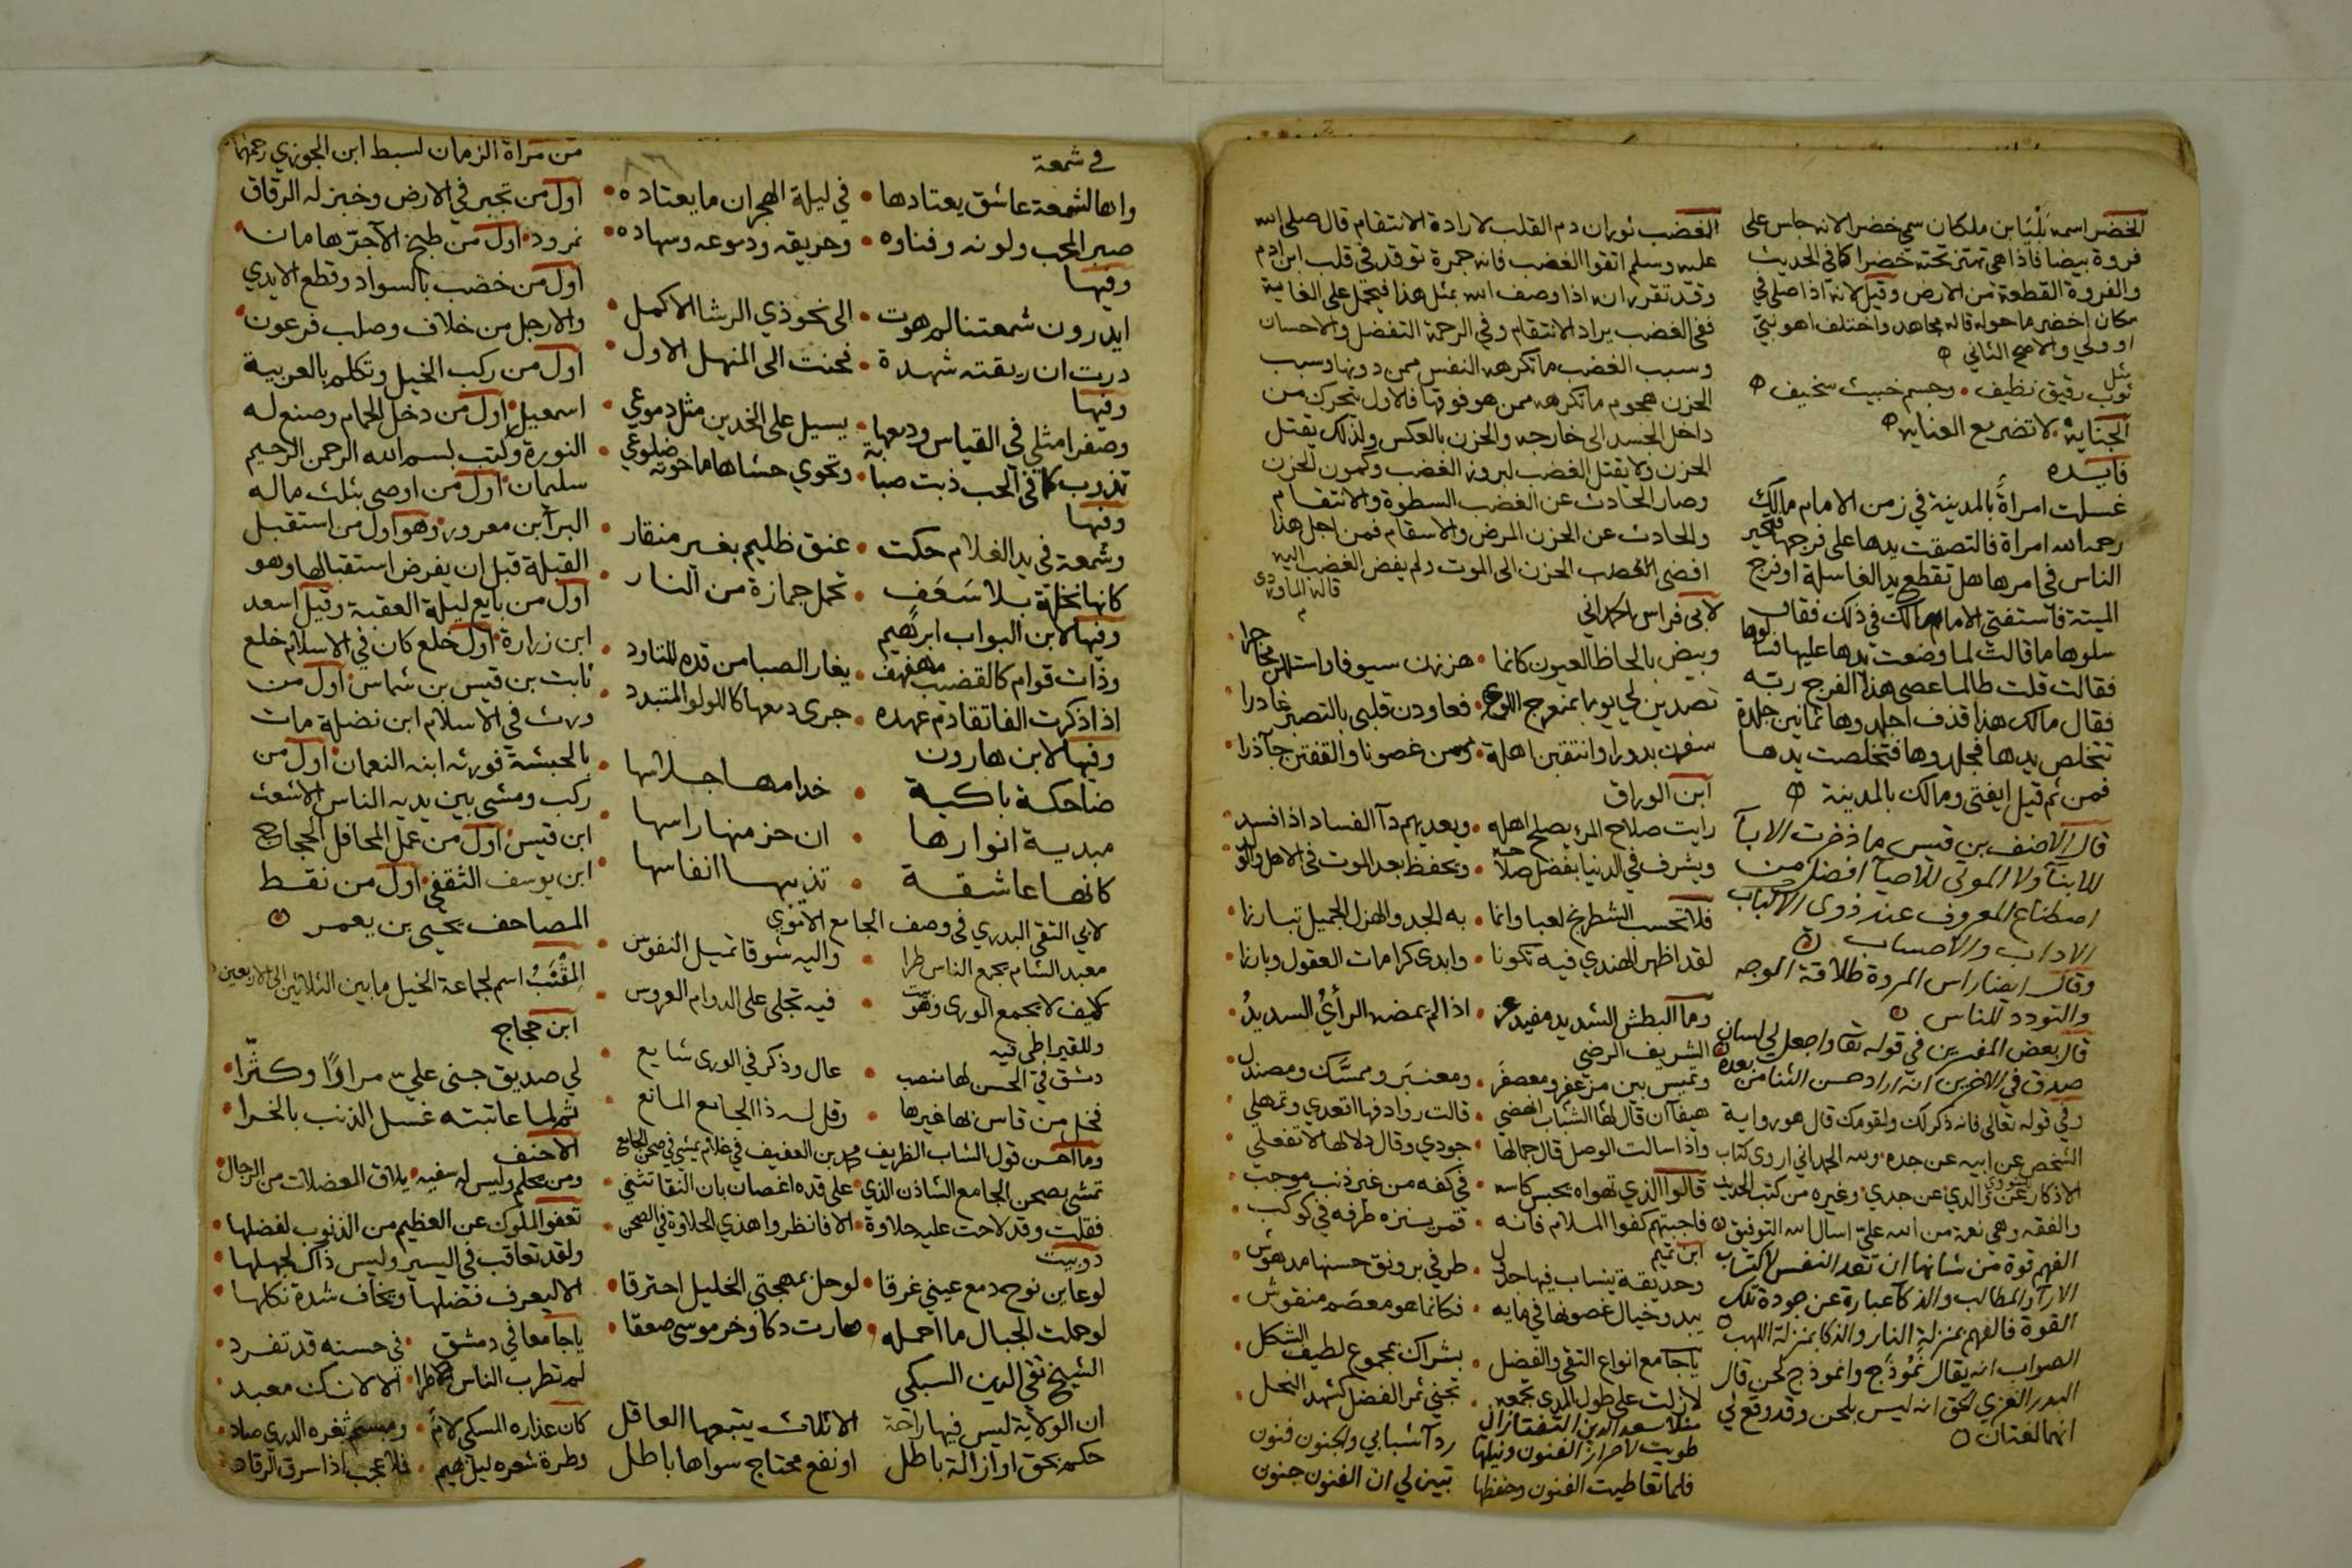 الخضر اسمه بَلْيَا بن ملكان سمي خضرا لانه جلس على
فروة بيضا فاذا هي تهتز تحته خضرا كما في الحديث
والفروة القطعة من الارض وقيل لانه اذا صلى في
مكان اخضر ما حوله قاله مجاهد واختلف اهو نبيّ
او ولي والاصح الثاني
مثل
ثوب رقيق نظيف • وجسم خبيث سخيف
الجناية • لا تضريع العناية
فايده
غسلت امراة بالمدينة في زمن الامام مالك
رحمه الله امراة فالتصقت يدها على فرجها فتحير
الناس في امرها هل تقطع يد الغاسلة او فرج
الميتة فاستفتي الامام مالك في ذلك فقال
سلوها ما قالت لما وضعت يدها عليها فسالوها
فقالت قلت طالما عصى هذا الفرج ربه
فقال مالك هذا قذف اجلدوها ثمانين جلدة
تتخلص يدها فجلدوها فتخلصت يدها
فمن ثم قيل ايفتى ومالك بالمدينة
قال الاحنف بن قيس ما ذخرت الابآ
للابنآ ولا الموتى للاحيآ افضل من
اصطناع المعروف عند ذوي الالباب
الاداب والاحساب
وقال ايضا راس المروة طلاقة الوجه
والتودد للناس
قال بعض المفسرين في قوله تعا واجعل لي لسان
صدق في الاخرين انه اراد حسن الثنا من بعده
وفي قوله تعالى فانه ذكر لك ولقومك قال هو رواية
الشخص عن ابيه عن جده • ولله الحمد اني اروي كتاب
الاذكار للنووي عن والدي عن جدي وغيره من كتب الحديث
والفقه وهي نعمة من الله عليّ اسال الله التوفيق
الفهم قوة من شانها ان تعد النفس لاكتساب
الارآ والمطالب والذكآ عبارة عن جودة تلك
القوة فالفهم بمنزلة النار والذكا بمنزلة اللهب
الصواب انه يقال نَمُوذَج وانموذج لحن قال
البدر الغزي الحق انه ليس بلحن وقد وقع لي
انهما لغتان
الغضب ثوران دم القلب لارادة الانتقام قال صلى الله
عليه وسلم اتقوا الغضب فانه جمرة توقد في قلب ابن ادم
وقد تقرر انه اذا وصف الله بمثل هذا فيحمل على الغاية
ففي الغضب يراد الانتقام وفي الرحمة التفضل والاحسان
وسبب الغضب ما تكرهه النفس ممن دونها وسبب
الحزن هجوم ما تكرهه ممن هو فوقها فالاول يتحرك من
داخل الجسد الى خارجه والحزن بالعكس ولذلك يقتل
الحزن ولا يقتل الغضب لبروز الغضب وكمون الحزن
وصار الحادث عن الغضب السطوة والانتقام
والحادث عن الحزن المرض والاسقام فمن اجل هذا
افضى الحزن الى الموت ولم يفض الغضب اليه
قاله الماوردى
لابي فراس الحمداني
وبيض بالحاظ العيون كانما • هززن سيوفا واستللن خناجرا
تصدين لي يوما بمنعرج اللوى • فغادرن قلبي بالتصبر غادرا
سفرن بدورا وانتقبن اهلة • ومسن غصونا والتفتن جآذرا
ابن الوراق
رايت صلاح المرء يصلح اهله • ويعديهم دآ الفساد اذا فسد
ويشرف في الدنيا بفضل صلاحه • ويحفظ بعد الموت في الاهل والولد
فلا تحسب الشطرنج لعبا وانما • به الجد والهزل الجميل تبارزا
لقد اظهر الهندي فيه تكونا • وابدى كرامات العقول وبارزا
وما البطش الشديد مفيد عز • اذا لم يمضه الرأيُ السديدُ
الشريف الرضي
وتميس بين مزعفر ومعصفر • ومعنبر وممسّك ومصندل
هيفآ ان قال لها الشباب انهضي • قالت روادفها اقعدي وتمهلي
واذا سالت الوصل قال جمالها • جودي وقال دلالها لا تفعلي
قالوا الذي تهواه يحبس كاسه • في كفه من غير ذنب موجب
فاجبتهم كفوا الملام فانه • قمر ينزه طرفه في كوكب
ابن تميم
وحديقة ينساب فيها جدول • طرفي برونق حسنها مدهوش
يبدو خيال غصونها في مايه • فكانما هو معصم منقوش
ياجامع انواع التقى والفضل • بشراك بمجموع لطيف الشكل
لازلت على طول المدى تجمعه • تجني ثمر الفضل كشهد النحل
منلا سعد الدين التفتازاني
طويت لاحراز الفنون ونيلها ردآ شبابي والجنون فنون
فلما تعاطيت الفنون وحفظها تبين لي ان الفنون جنون
في شمعة
واها لشمعة عاشق يعتادها • في ليلة الهجران ما يعتاده
صبر المحب ولونه وفناوه • وحريقه ودموعه وسهاده
وفيها
ايدرون شمعتنا لم هوت • الى نحو ذي الرشا الاكمل
درت ان ريقته شهدة • فحنت الى المنهل الاول
وفيها
وصفرا مثلي في القياس ودمعها • يسيل على الخدين مثل دموعي
تذوب كما في الحب ذبت صبابة • وتحوي حشاها ما حوته ضلوعي
وفيها
وشمعة في يد الغلام حكت • عنق ظليم بغير منقار
كانها نخلة بلا سَعَف • تحمل جمازة من النار
وفيها لابن البواب ابرهيم
وذات قوام كالقضيب مهفهف • يغار الصبا من قده للتاود
اذا ذكرت الفا تقادم عهده • جرى دمعها كاللولو المتبدد
وفيها لابن هارون
ضاحكة باكية • خدامها جلاسها
مبدية انوارها • ان حز منها راسها
كانها عاشقة • تذيبها انفاسها
لابي التقي البدري في وصف الجامع الاموي
معبد الشام يجمع الناس طرا • واليه شوقا تميل النفوس
كيف لا يجمع الورى وهو بيت • فيه تجلى على الدوام العروس
وللقيراطي فيه
دمشق في الحسن لها منصب • عال وذكر في الورى شايع
فخل من قاس بها غيرها • وقل له ذا الجامع المانع
وما احسن قول الشاب الظريف محمد بن العفيف في غلام يمشي في صحن الجامع
تمشى بصحن الجامع الشاذن الذي • على قده اغصان بان النقا تثني
فقلت وقد لاحت عليه حلاوة • الا فانظروا هذي الحلاوة في الصحن
دوبيت
لو عاين نوح دمع عيني غرقا • لو حل بمهجتي الخليل احترقا
لو حملت الجبال ما احمله • صارت دكا وخر موسى صعقا
الشيخ تقي الدين السبكي
ان الولاية ليس فيها راحة الا ثلاث يتبعها العاقل
حكم بحق او ازالة باطل او نفع محتاج سواها باطل
من مراة الزمان لسبط ابن الجوزي رحمهما
اول من تجبر في الارض وخبز له الرقاق
نمرود • اول من طبخ الآجرّ هامان
اول من خضب بالسواد وقطع الايدي
والارجل من خلاف وصلب فرعون
اول من ركب الخيل وتكلم بالعربية
اسمعيل • اول من دخل الحمام وصنع له
النورة وكتب بسم الله الرحمن الرحيم
سليمان • اول من اوصى بثلث ماله
البرآ بن معرور وهو اول من استقبل
القبلة قبل ان يفرض استقبالها وهو
اول من بايع ليلة العقبة وقيل اسعد
ابن زرارة • اول خلع كان في الاسلام خلع
ثابت بن قيس بن شماس • اول من
ورث في الاسلام ابن نضلة مات
بالحبشة فورثه ابنه النعمان • اول من
ركب ومشى بين يديه الناس الاشعث
ابن قيس • اول من عمل المحافل الحجاج
ابن يوسف الثقفي • اول من نقط
المصاحف يحيى بن يعمر
المِقْنَبُ اسم لجماعة الخيل ما بين الثلاثين الى الاربعين
ابن حجاج
لي صديق جنى عليّ مرارًا وكثّرا
ثم لما عاتبته غسل الذنب بالخرا
الاحنف
ومن يحلم وليس له سفيه • يلاق المعضلات من الرجال
تعفو الملوك عن العظيم من الذنوب لفضلها
ولقد تعاقب في اليسير وليس ذاك لجهلها
الا ليعرف فضلها ويخاف شدة نكلها
ياجامعا في دمشق • في حسنه قد تفرد
لم تطرب الناس طرا • الا لانك معبد
كان عذاره المسكي لامٌ • ومبسم ثغره الدري صاد
وطرة شعره ليل بهيم • فلا عجب اذا سرق الرقاد